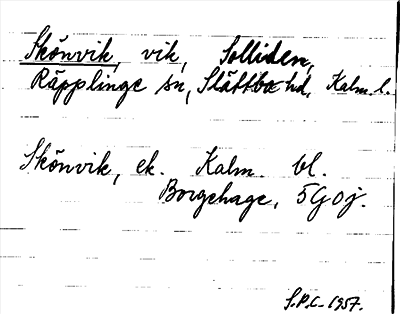 Skönvik, vik, Solliden,
Räpplinge sn, Slättbo hd, Kalm. l.
Skönvik, ek. Kalm. bl.
Borgehage, 5G0j.
S.P.C. 1957.